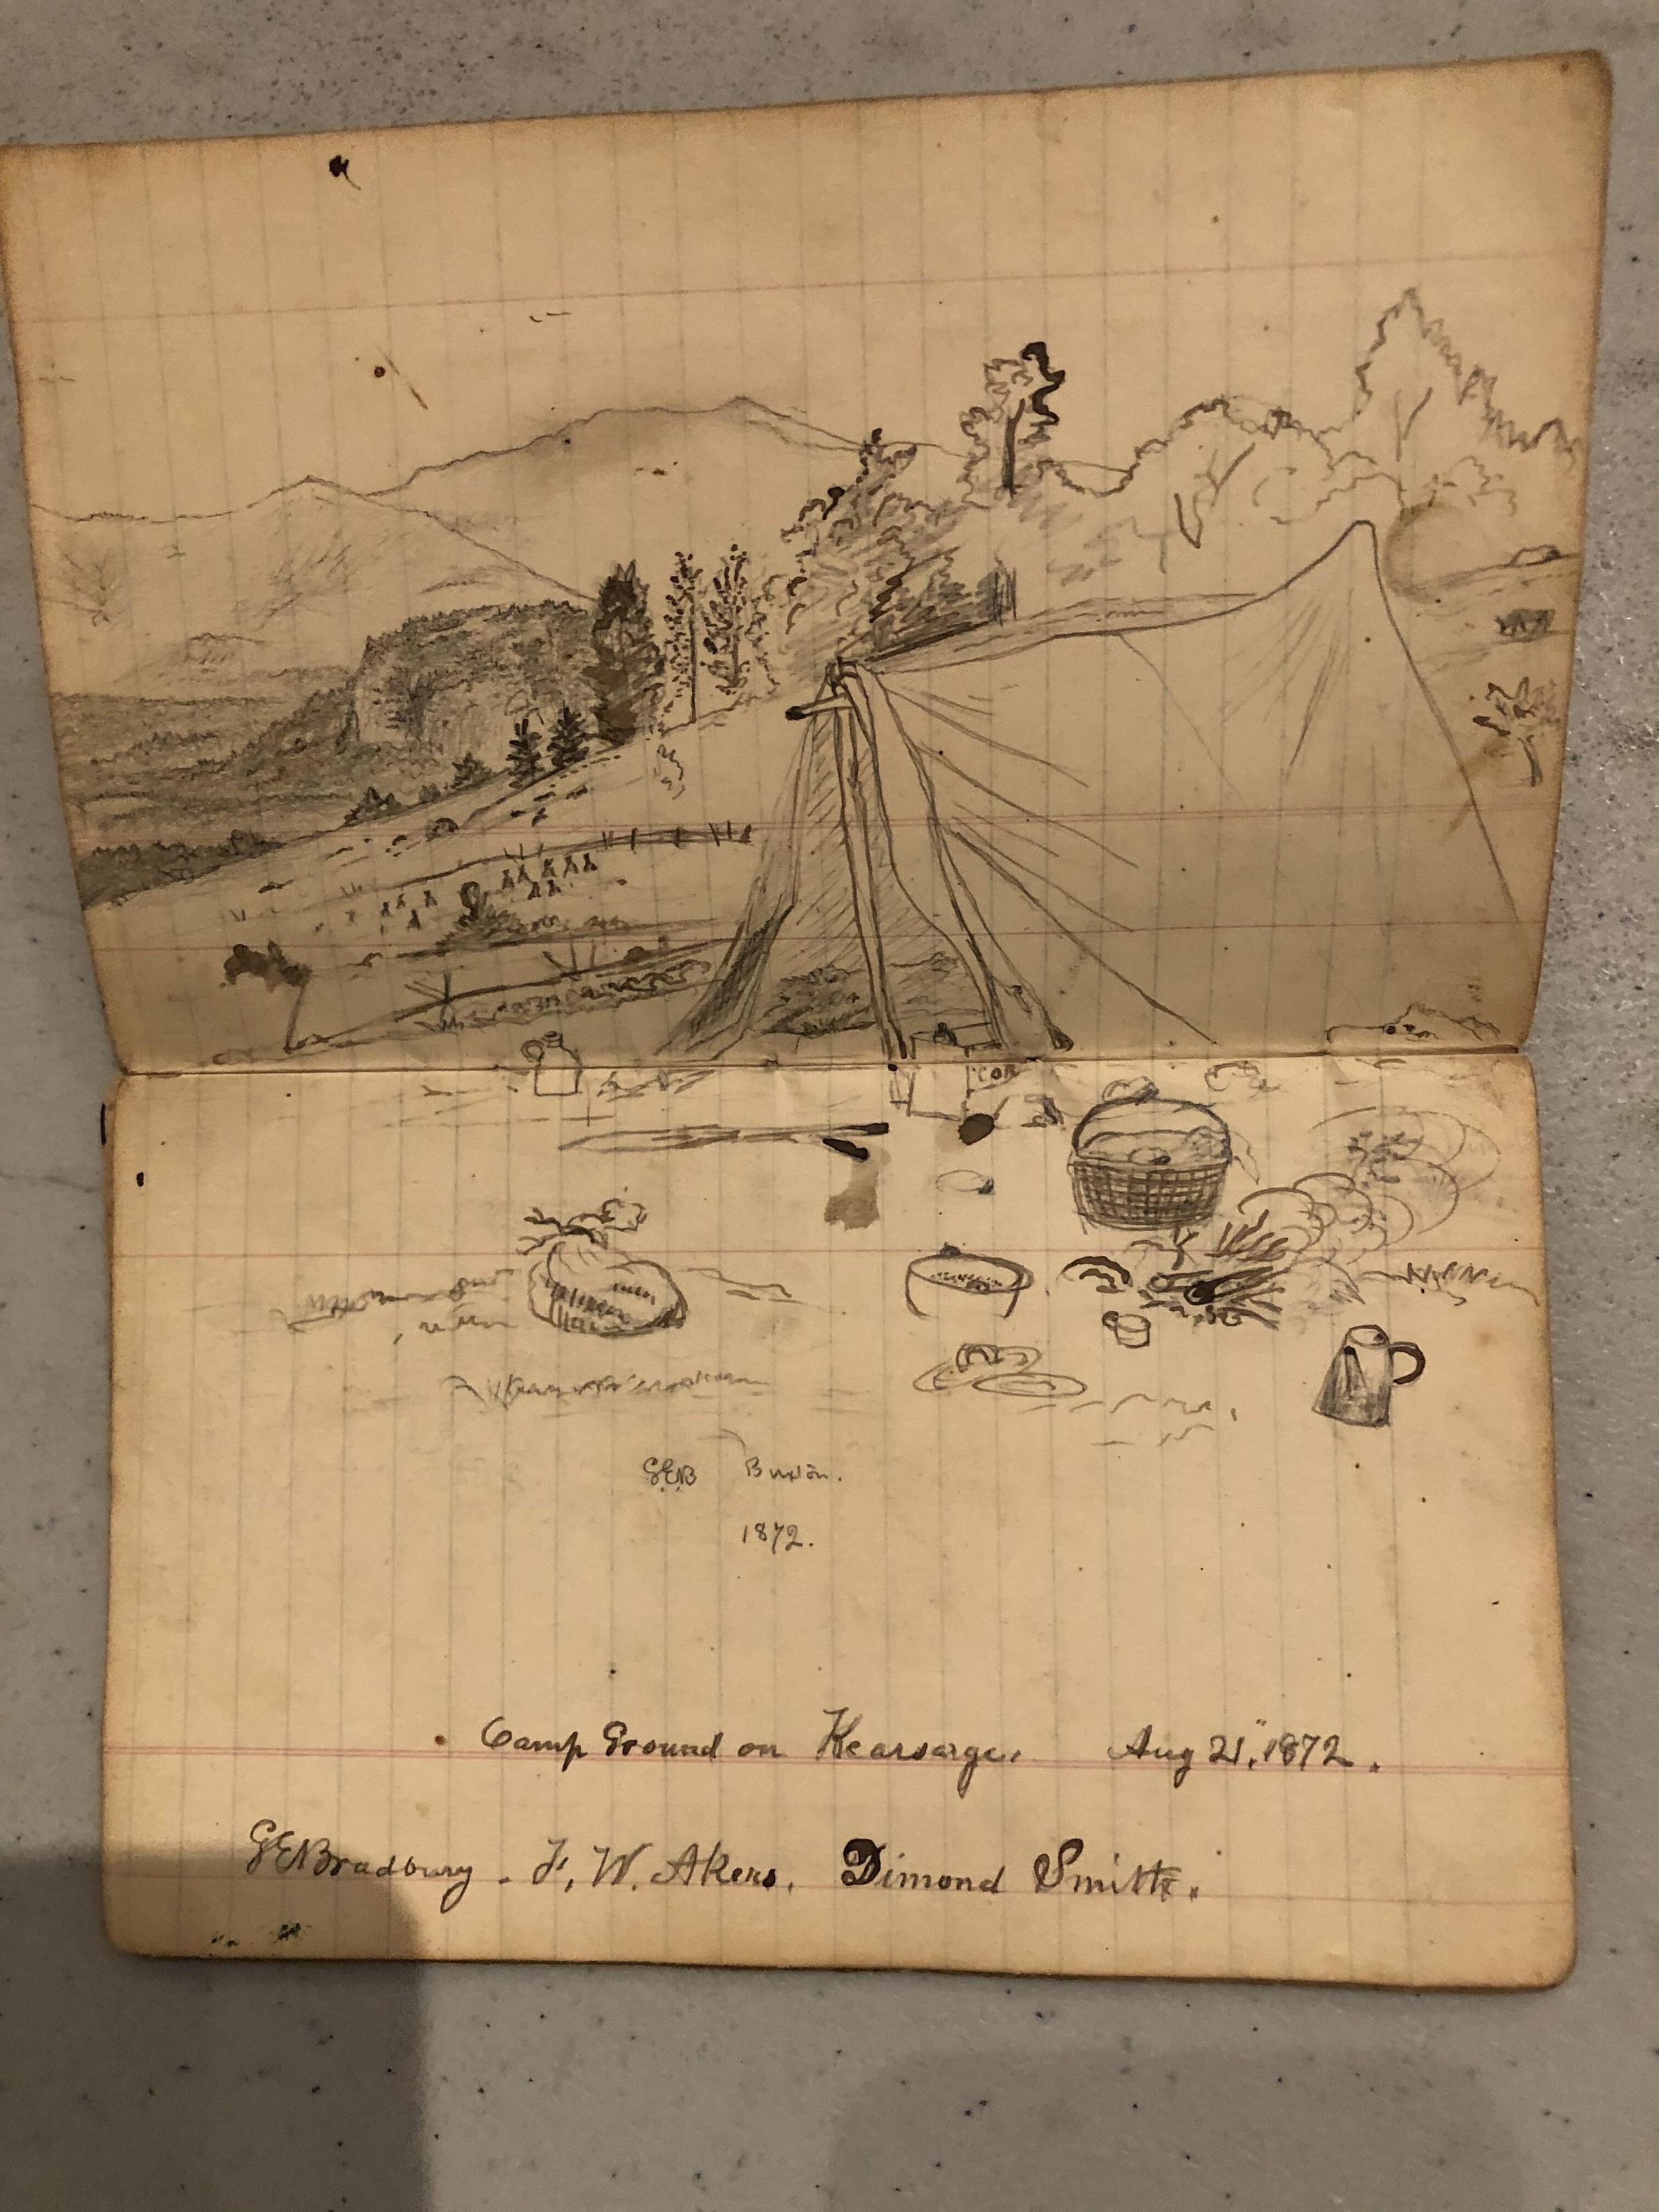 GEB Buxton.
1872.
Camp Ground on Kearsarge. Aug 21," 1872.
GEBradbury - F, W. Akers. Dimond Smith.